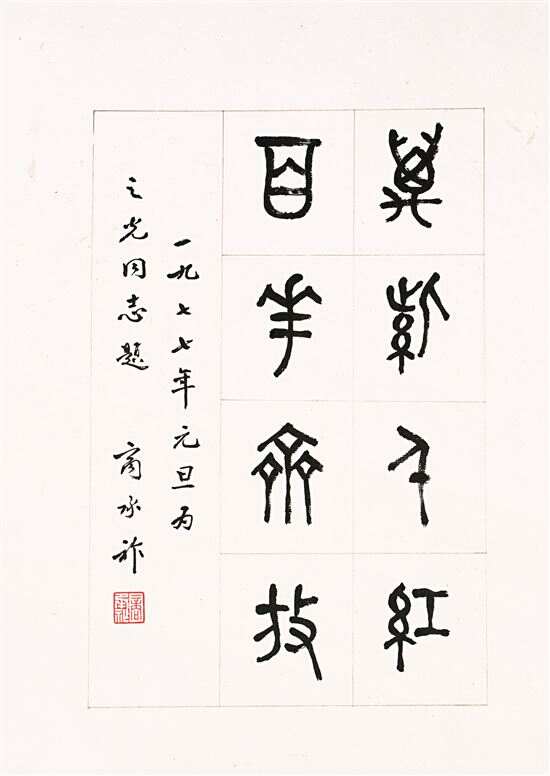 萬紫千紅
百華齊放
一九七七年元旦为
之光同志题 商承祚